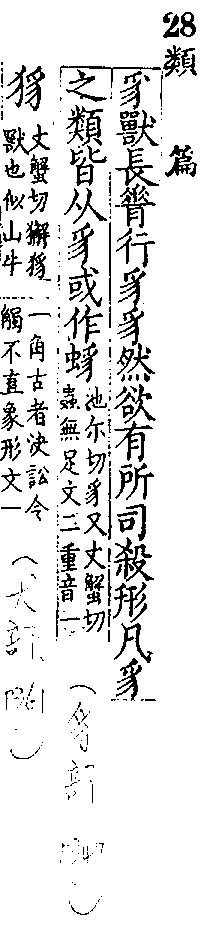 28類篇
豸獸長脊行豸豸然欲有所司殺形凡豸
之類皆从豸或作蛥池尔切豸又丈蟹切
蟲無足文二重音一
(豸部
豸丈蟹切獬豸
獸也似山牛
一角古者决訟令
觸不直象形文一
(犬部
1361)